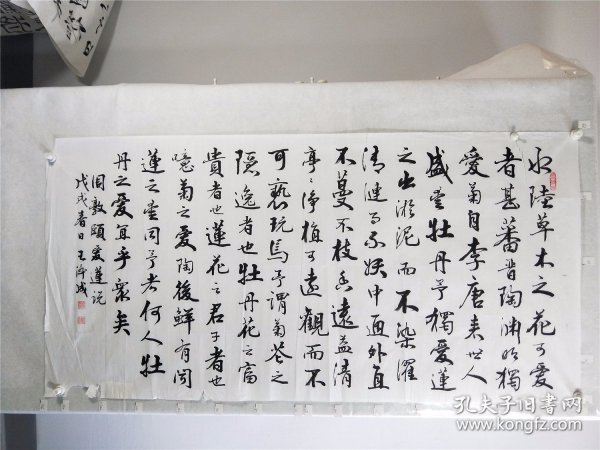 水陸草木之花可愛
者甚蕃晋陶渊明獨
愛菊自李唐来世人
盛爱牡丹予獨爱蓮
之出淤泥而不染濯
清漣而不妖中通外直
不蔓不枝香遠益清
亭〻净植可遠觀而不
可褻玩焉予謂菊花之
隱逸者也牡丹花之富
貴者也蓮花之君子者也
噫菊之爱陶後鮮有闻
蓮之爱同予者何人牡
丹之爱宜乎眾矣
周敦頤爱蓮说
戊戌春日王
孔夫子旧书网
www.kongfz.com